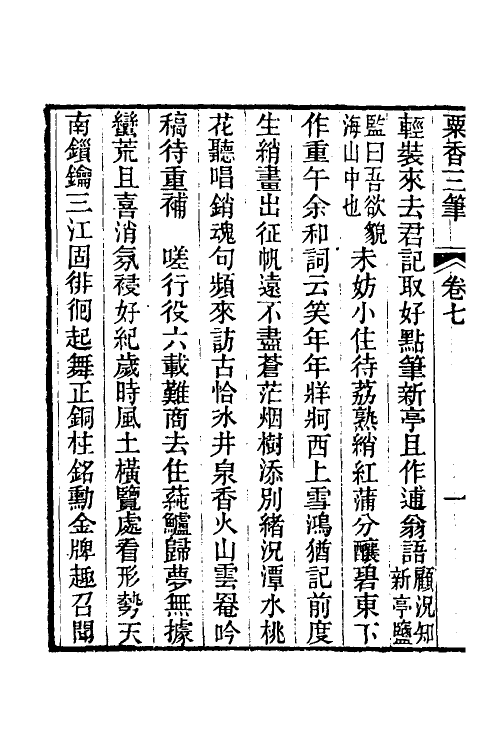 粟香三筆 卷七 一
輕裝來去君記取好點筆新亭且作逋翁語顧況知新亭鹽
監曰吾欲貌海山中也未妨小住待荔熟綃紅蒲分釀碧東下
作重午余和詞云笑年年牂牁西上雪鴻猶記前度
生綃畫出征帆遠不盡蒼茫烟樹添別緒況潭水桃
花聽唱銷魂句頻來訪古恰冰井泉香火山雲罨吟
稿待重補　嗟行役六載難商去住蒓鱸歸夢無據
蠻荒且喜消氛祲好紀歲時風土橫覽處看形勢天
南鎖鑰三江固徘徊起舞正銅柱銘勳金牌趣召聞